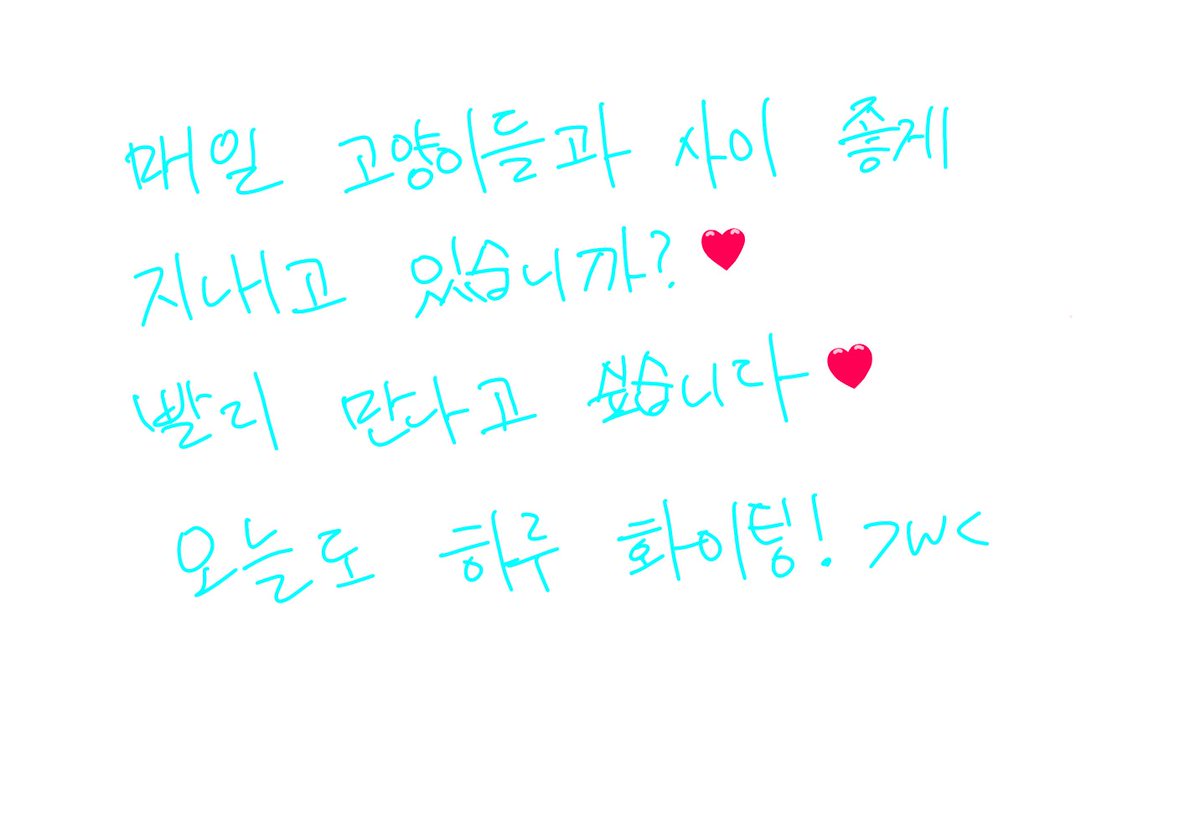 매일 고양이들과 사이 좋게
지내고 있습니까?❤
빨리 만나고 싶습니다❤
오늘도 하루 화이팅! >w<